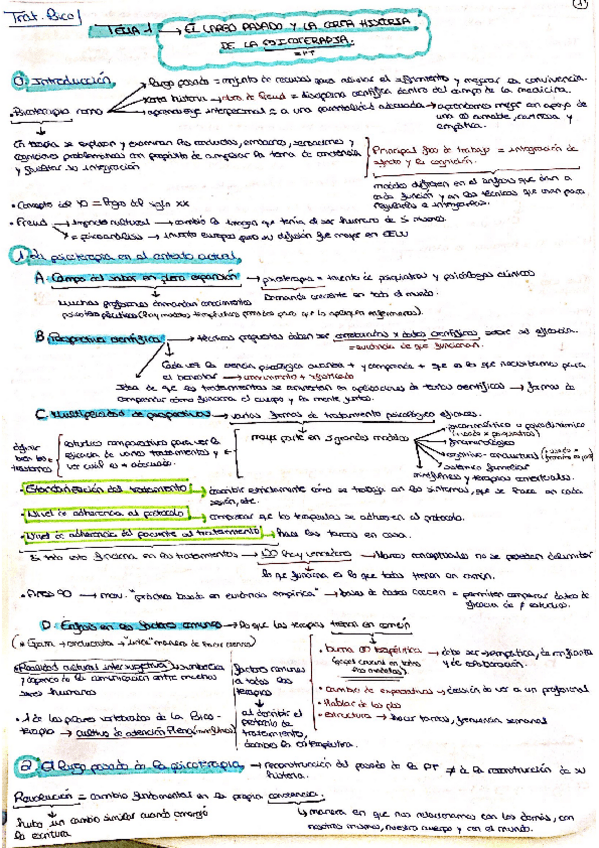 Trat. Psico I
TEMA 1 → EL LARGO PASADO Y LA CORTA HISTORIA
DE LA PSICOTERAPIA.
0. Introducción
largo pasado = conjunto de recursos para aliviar el sufrimiento y mejorar la convivencia.
• Psicoterapia como
corta historia → obra de Freud = disciplina científica dentro del campo de la medicina.
aprendizaje interpersonal = a una parentalidad adecuada → aprendemos mejor con apoyo de
una amable, cariñosa y
empática.
En terapia se exploran y examinan las conductas, emociones, sensaciones y
cogniciones problemáticas con propósito de ampliar la toma de conciencia
y facilitar la integración
Principal foco de trabajo = integración de
afecto y la cognición.
modelos difieren en el énfasis que dan a
cada función y en las técnicas que usan para
regularlas e integrarlas.
• Concepto del YO = logro del siglo XX
• Freud → impacto cultural → cambió la imagen que tenía el ser humano de sí mismo.
= psicoanálisis → invento europeo pero su difusión fue mayor en EEUU
1. La psicoterapia en el contexto actual
A. Campo del saber en plena expansión → psicoterapia = invento de psiquiatras y psicólogos clínicos
Muchos profesionales demandan conocimientos
Demanda creciente en todo el mundo.
B. Perspectiva científica → técnicas propuestas deben ser contrastadas x datos científicos sobre su eficacia.
= evidencia de que funcionan.
Cada vez la ciencia psicológica avanza + y comprende + que es lo que necesitamos para
el bienestar
Idea de que los tratamientos se conviertan en aplicaciones de textos científicos → formas de
comprender cómo funciona el cuerpo y la mente juntos.
C. Multiplicidad de perspectivas → varias formas de tratamiento psicológico eficaces.
definir
bien los
trastornos
estudios comparativos para ver la
eficacia de varios tratamientos y
ver cuál es + adecuado.
mayor parte en 5 grandes modelos
psicoanalítico o psicodinámico
fenomenológico
cognitivo-conductual
sistémico familiar
mindfulness y terapias contextuales.
• Estandarización del tratamiento → describir estrictamente cómo se trabajan los síntomas, qué se hace en cada
sesión, etc.
• Nivel de adherencia al protocolo → comprobar que los terapeutas se adhieren al protocolo.
• Nivel de adherencia del paciente al tratamiento → hace las tareas en casa.
Si todo esto funciona en los tratamientos → NO hay vencedores → Marcos conceptuales no se pueden delimitar
lo que funciona es lo que todos tienen en común.
• Años 90 → mov. "práctica basada en evidencia empírica" → bases de datos = permiten comparar datos de
eficacia de ≠ estudios.
D. Énfasis en los factores comunes → lo que las terapias tienen en común
• Realidad cultural intersubjetiva →
y capacidad de la comunicación entre
seres humanos
factores comunes
a todas las
terapias
al describir el
protocolo de
tratamiento,
• buena AT terapéutica
(papel crucial en todos
los modelos).
→ debe ser → empática, de confianza
y de colaboración.
• cambio de expectativas → decisión de ver a un profesional
• Hablar de los pbs
• estructura → hacer tareas, frecuencia semanal
• 1 de los pilares vertebrales de la Psico-
terapia → cultivo de atención Plena (mindfulness)
2. El largo pasado de la psicoterapia → reconstrucción del pasado de la PT ≠ a la reconstrucción de su
historia.
Revolución = cambio fundamental en la propia conciencia.
hubo un cambio similar cuando emergió
la escritura
manera en que nos relacionamos con los demás, con
nosotros mismos, nuestro cuerpo y con el mundo.